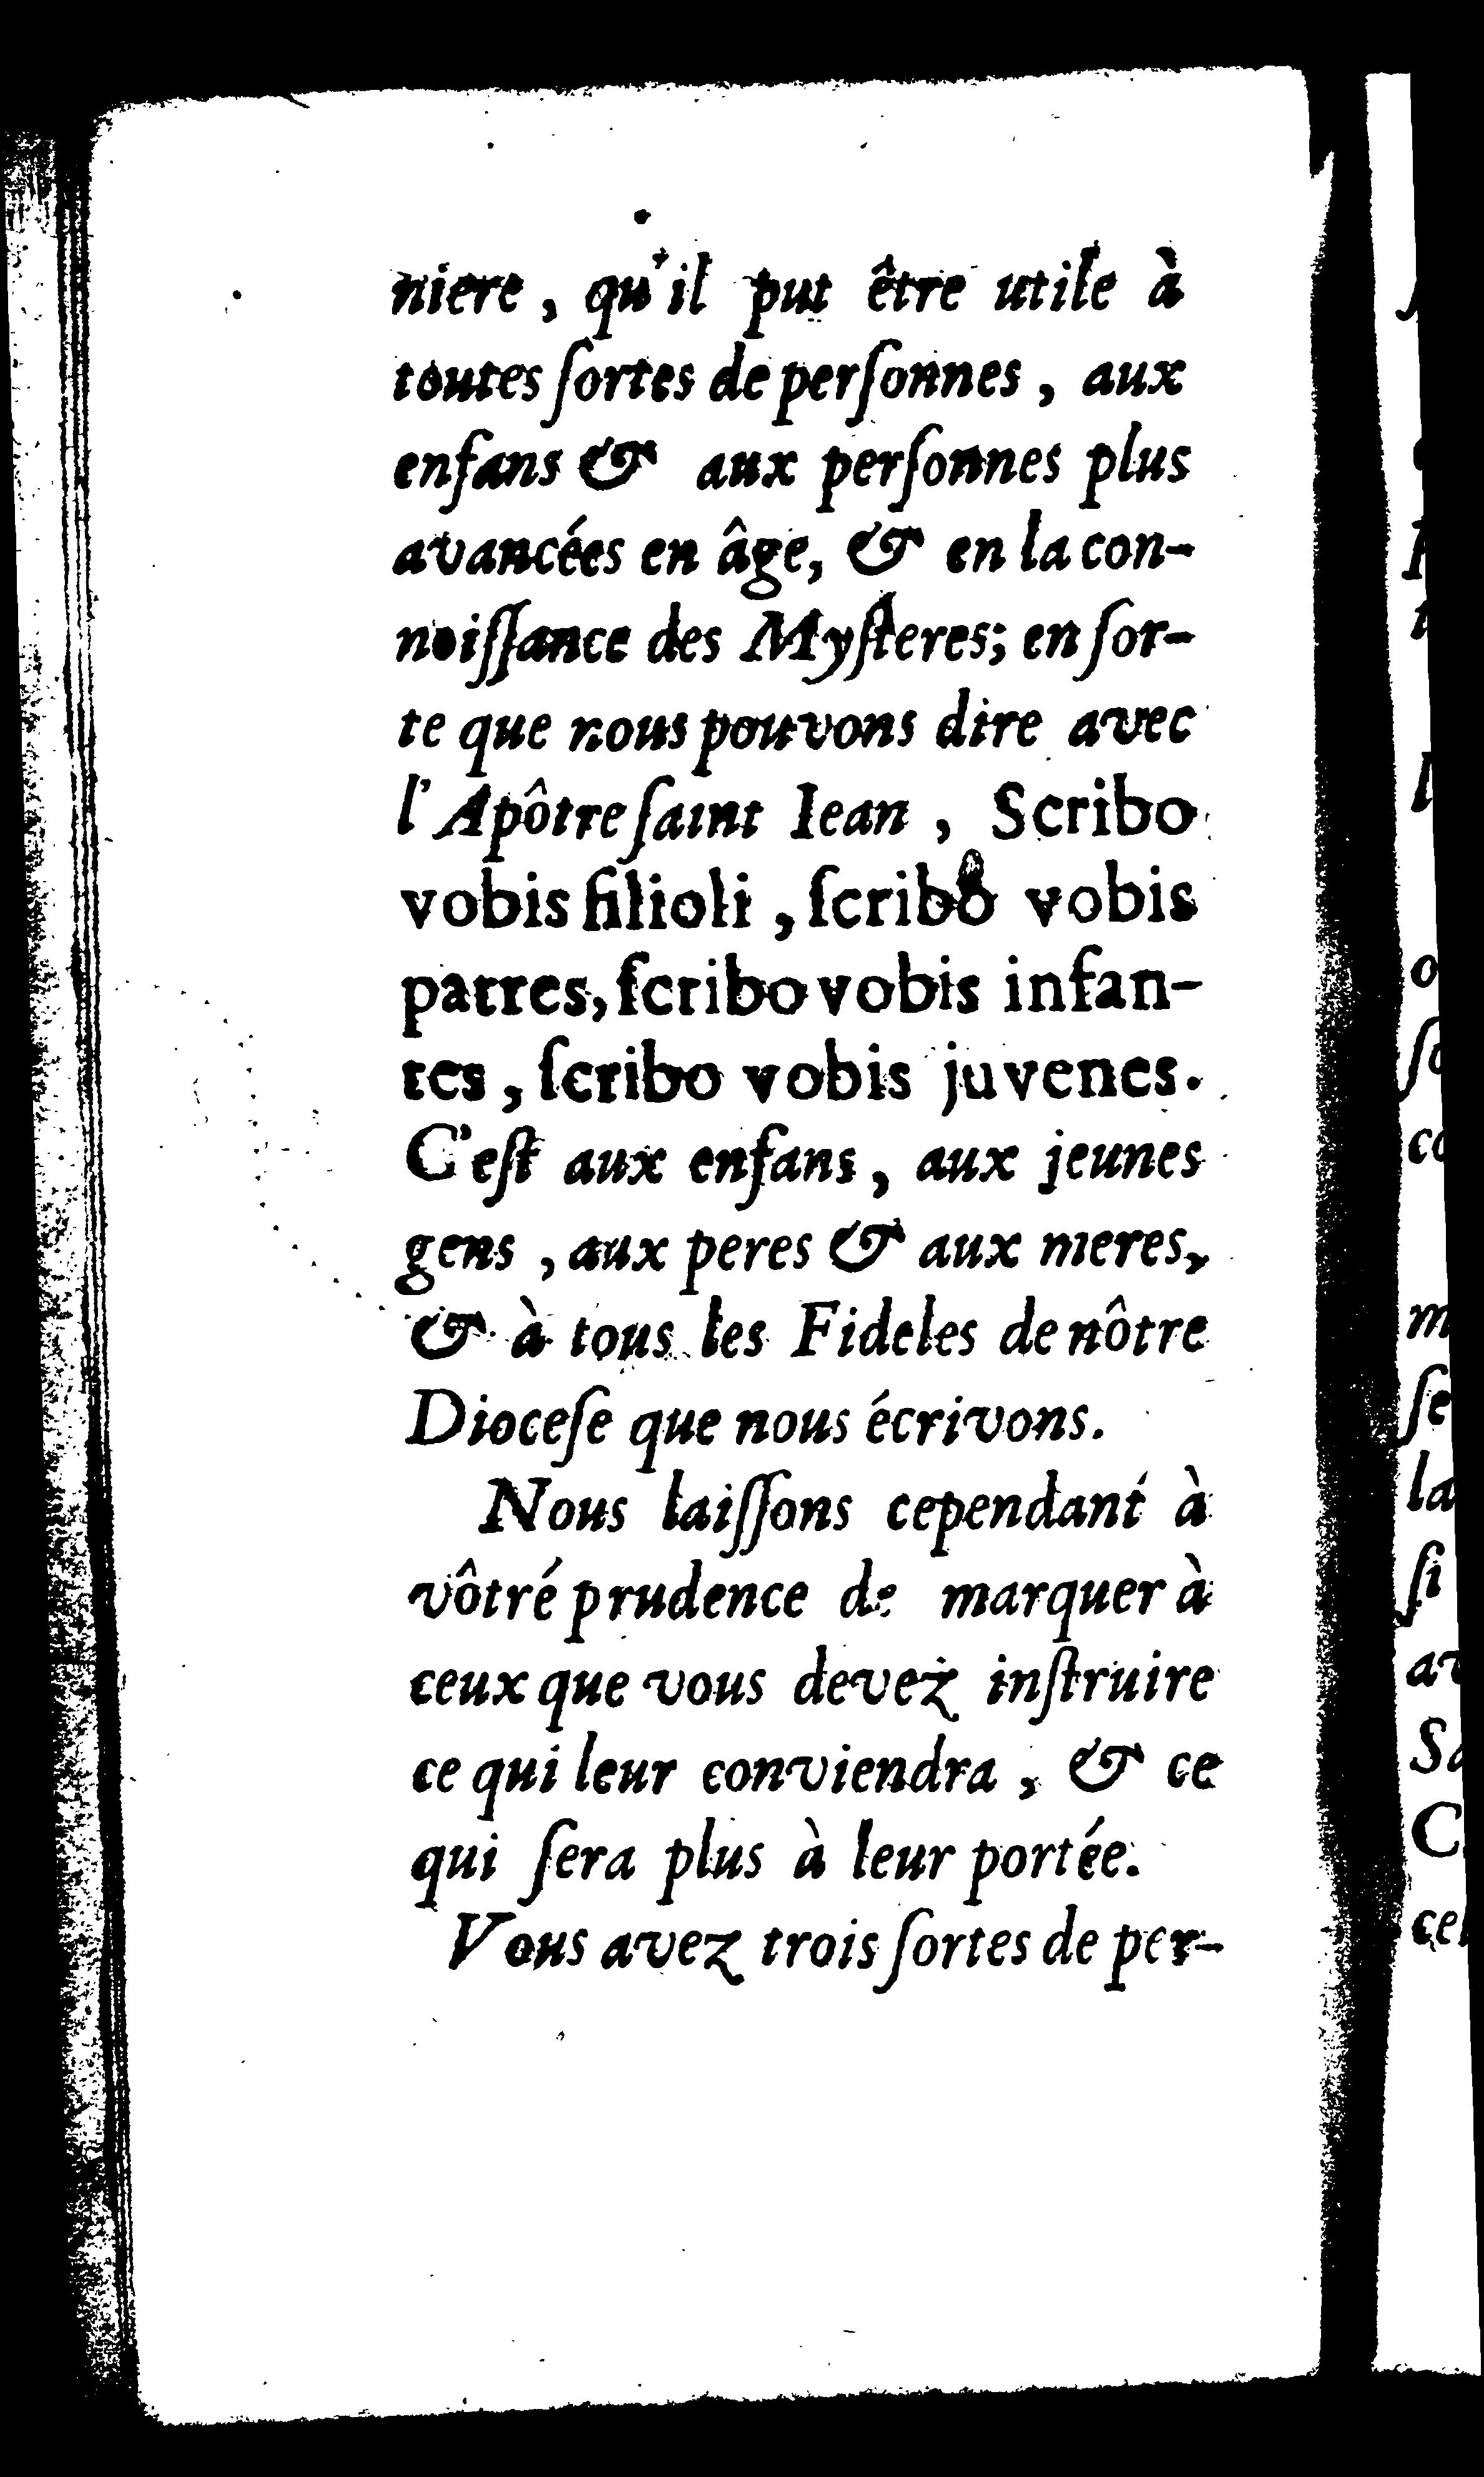 niere, qu'il put être utile à
toutes ſortes de perſonnes, aux
enfans & aux perſonnes plus
avancées en âge, & en la con-
noiſſance des Myſteres; en ſor-
te que nous pouvons dire avec
l'Apôtre ſaint Iean, Scribo
vobis filioli, ſcribo vobis
patres, ſcribo vobis infan-
tes, ſcribo vobis juvenes.
C'eſt aux enfans, aux jeunes
gens, aux peres & aux meres,
& à tous les Fideles de nôtre
Dioceſe que nous écrivons.
Nous laiſſons cependant à
vôtré prudence de marquer à
ceux que vous devez inſtruire
ce qui leur conviendra, & ce
qui ſera plus à leur portée.
Vous avez trois ſortes de per-